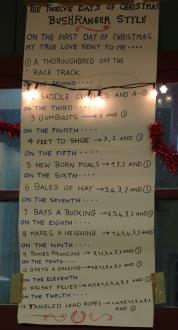 THE TWELVE DAYS OF CHRISTMAS
BUSHRANGER STYLE
ON THE FIRST DAY OF CHRISTMAS
MY TRUE LOVE SENT TO ME ....
① A THOROUGHBRED OFF THE
RACE TRACK
SECOND ....
SADDLE AND A ①
ON THE THIRD ....
3 GUMBOOTS AND ①
ON THE FOURTH ....
4 FEET TO SHOE 3, 2 AND ①
ON THE FIFTH ....
5 NEW BORN FOALS 4, 3, 2 AND ①
ON THE SIXTH ....
6 BALES OF HAY 5, 4, 3, 2 AND ①
ON THE SEVENTH ....
7 BAYS A BUCKING 6, 5, 4, 3, 2 AND ①
ON THE EIGHTH ....
8 MARES A NEIGHING 7, 6, 5, 4, 3, 2 AND ①
ON THE NINTH ....
9 PONIES PRANCING
ON THE TENTH ....
10 GREYS A GRAZING
ON THE ELEVENTH
11 WHISKY FILLIES
ON THE TWELTH ....
12 TANGLED LEAD ROPES